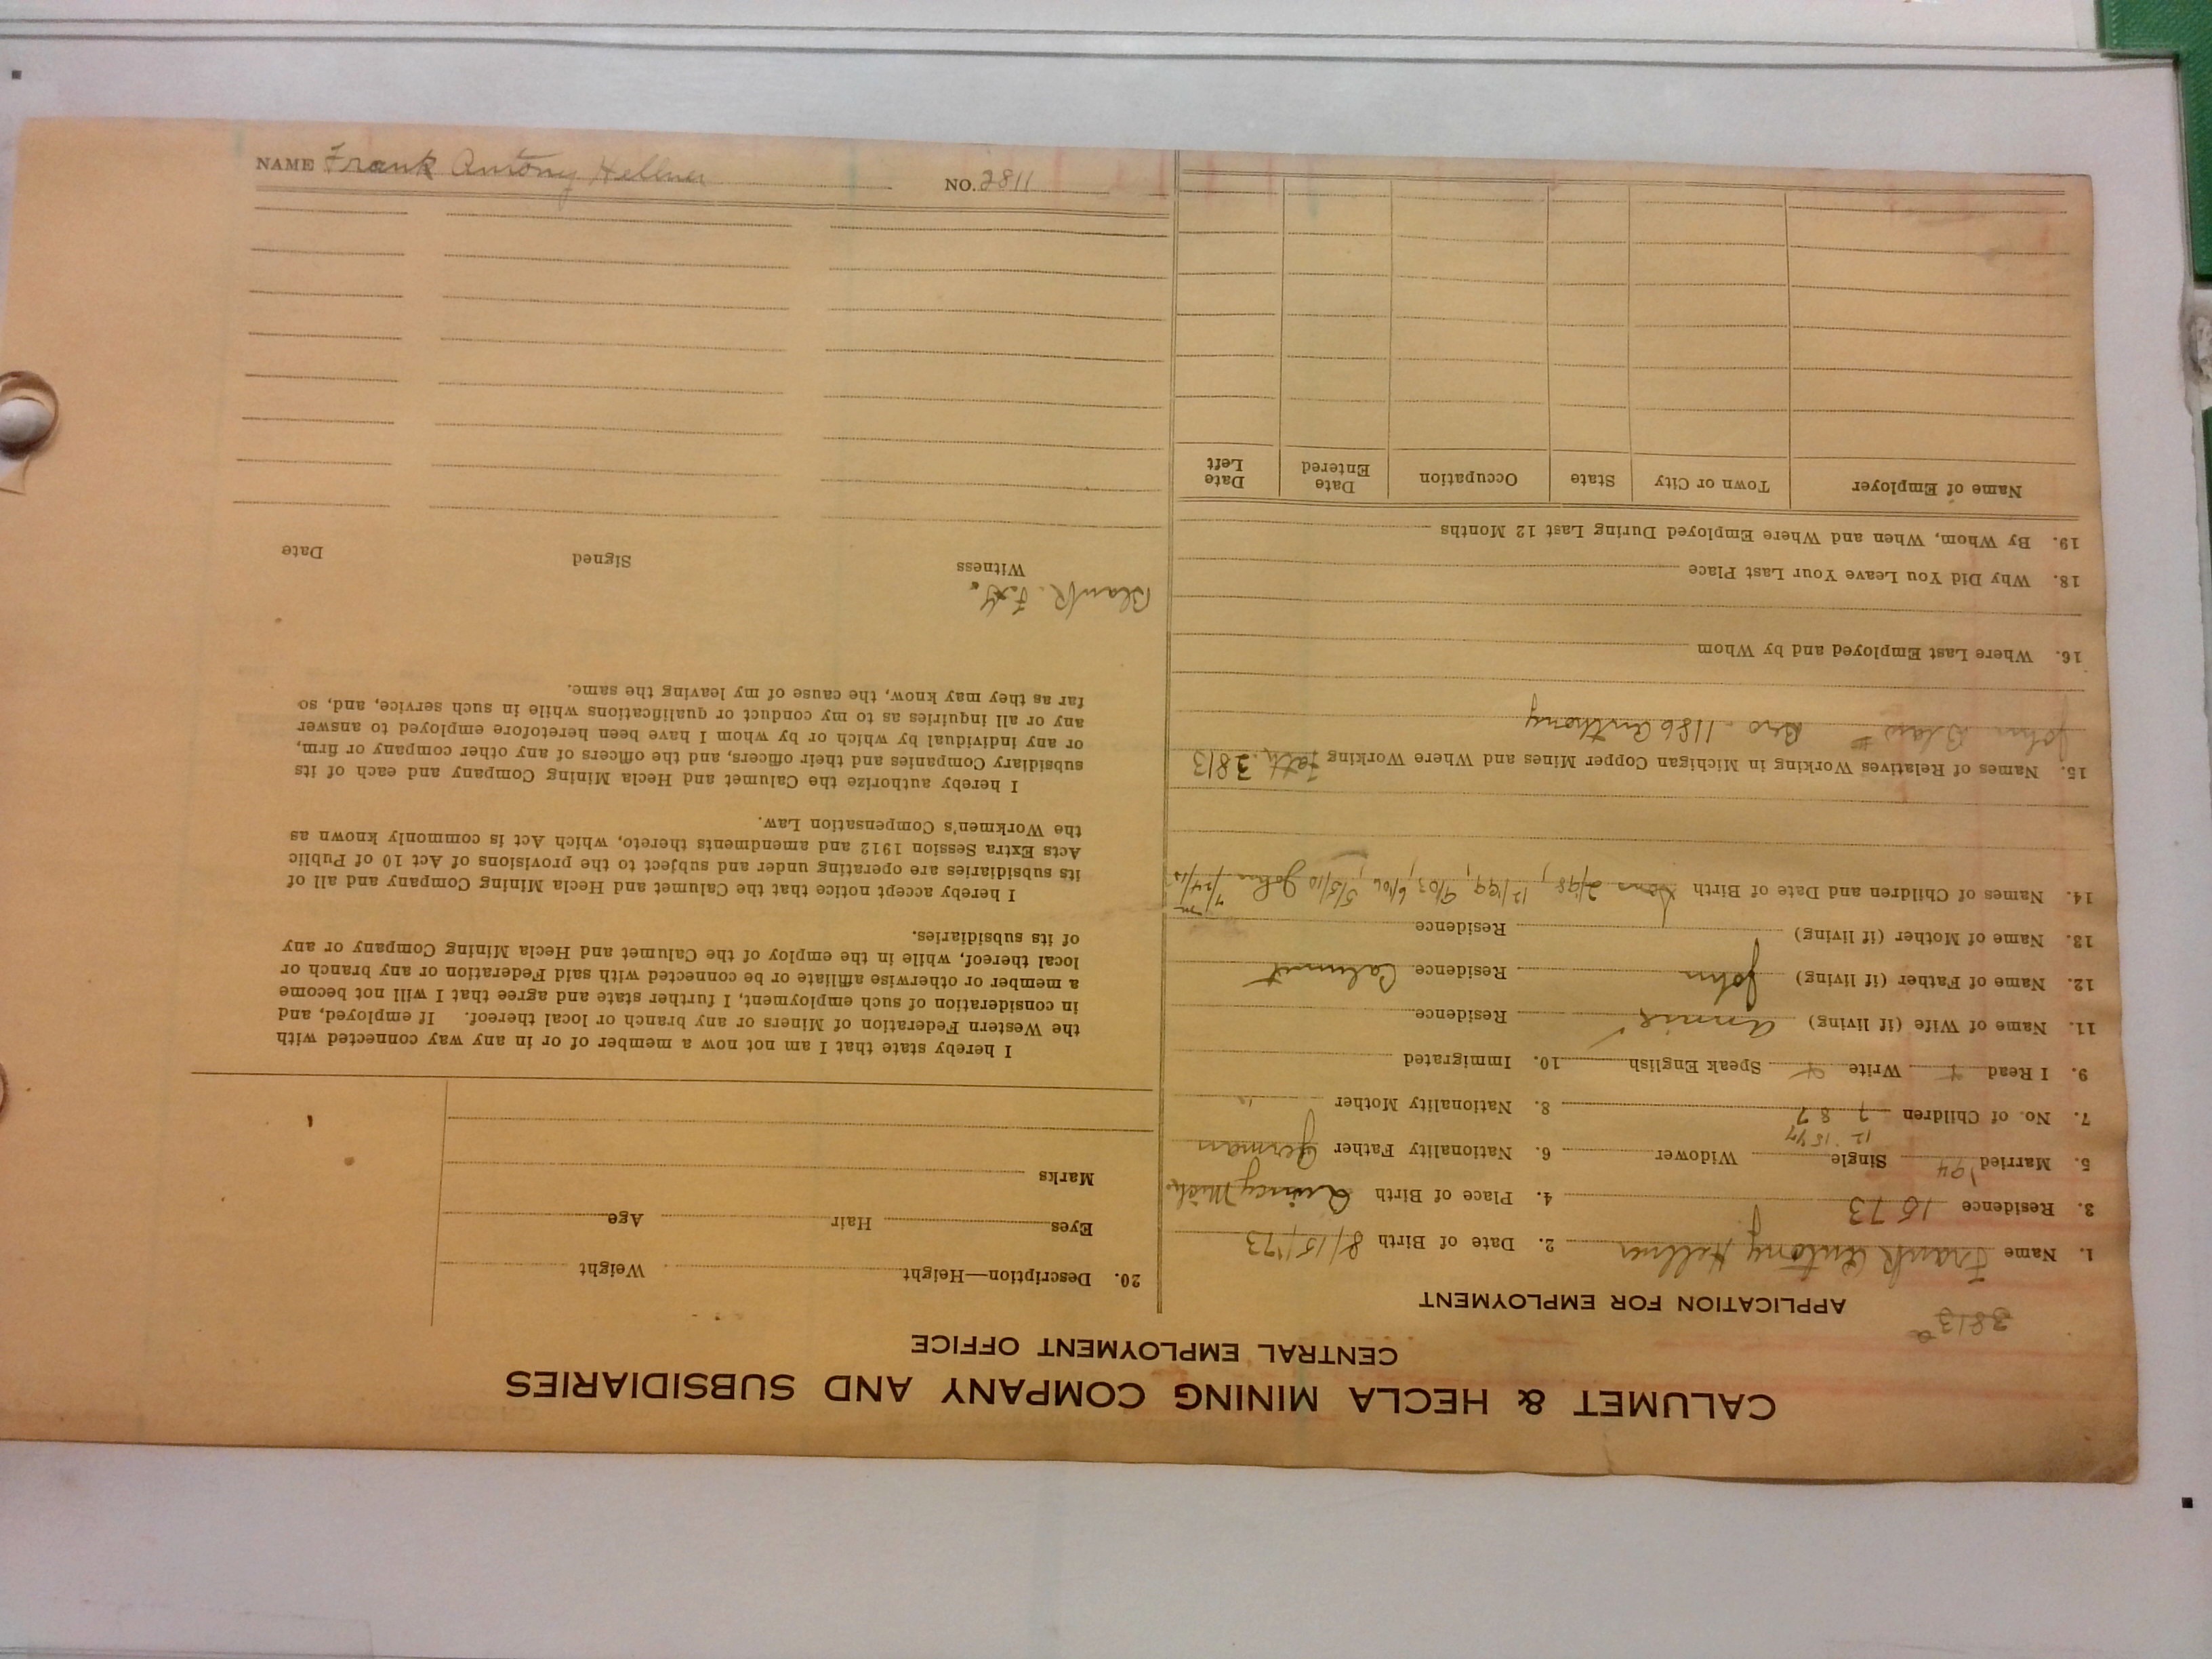 NAME Frank Antony Hellner NO. 2811
CALUMET & HECLA MINING COMPANY AND SUBSIDIARIES
CENTRAL EMPLOYMENT OFFICE
3813
APPLICATION FOR EMPLOYMENT
1. Name Frank Antony Hellner 2. Date of Birth 8/15/'73
3. Residence 1573 4. Place of Birth Quincy Mich.
5. Married '94 Single Widower 6. Nationality Father German
12 15 47
7. No. of Children 7 8 7 8. Nationality Mother "
9. I Read Write Speak English 10. Immigrated
11. Name of Wife (if living) Annie Residence
12. Name of Father (if living) John Residence Calumet
13. Name of Mother (if living) Residence
14. Names of Children and Date of Birth Sons 2/98, 12/99, 9/03, 6/06, 5/5/10 John 7/24/12
15. Names of Relatives Working in Michigan Copper Mines and Where Working Fath. 3813
John Bro 1186 Anthony
16. Where Last Employed and by Whom
18. Why Did You Leave Your Last Place
19. By Whom, When and Where Employed During Last 12 Months
Name of Employer Town or City State Occupation Date Entered Date Left
20. Description—Height Weight
Eyes Hair Age
Marks
I hereby state that I am not now a member of or in any way connected with
the Western Federation of Miners or any branch or local thereof. If employed, and
in consideration of such employment, I further state and agree that I will not become
a member or otherwise affiliate or be connected with said Federation or any branch or
local thereof, while in the employ of the Calumet and Hecla Mining Company or any
of its subsidiaries.
I hereby accept notice that the Calumet and Hecla Mining Company and all of
its subsidiaries are operating under and subject to the provisions of Act 10 of Public
Acts Extra Session 1912 and amendments thereto, which Act is commonly known as
the Workmen's Compensation Law.
I hereby authorize the Calumet and Hecla Mining Company and each of its
subsidiary Companies and their officers, and the officers of any other company or firm,
or any individual by which or by whom I have been heretofore employed to answer
any or all inquiries as to my conduct or qualifications while in such service, and, so
far as they may know, the cause of my leaving the same.
Blank
Witness Signed Date